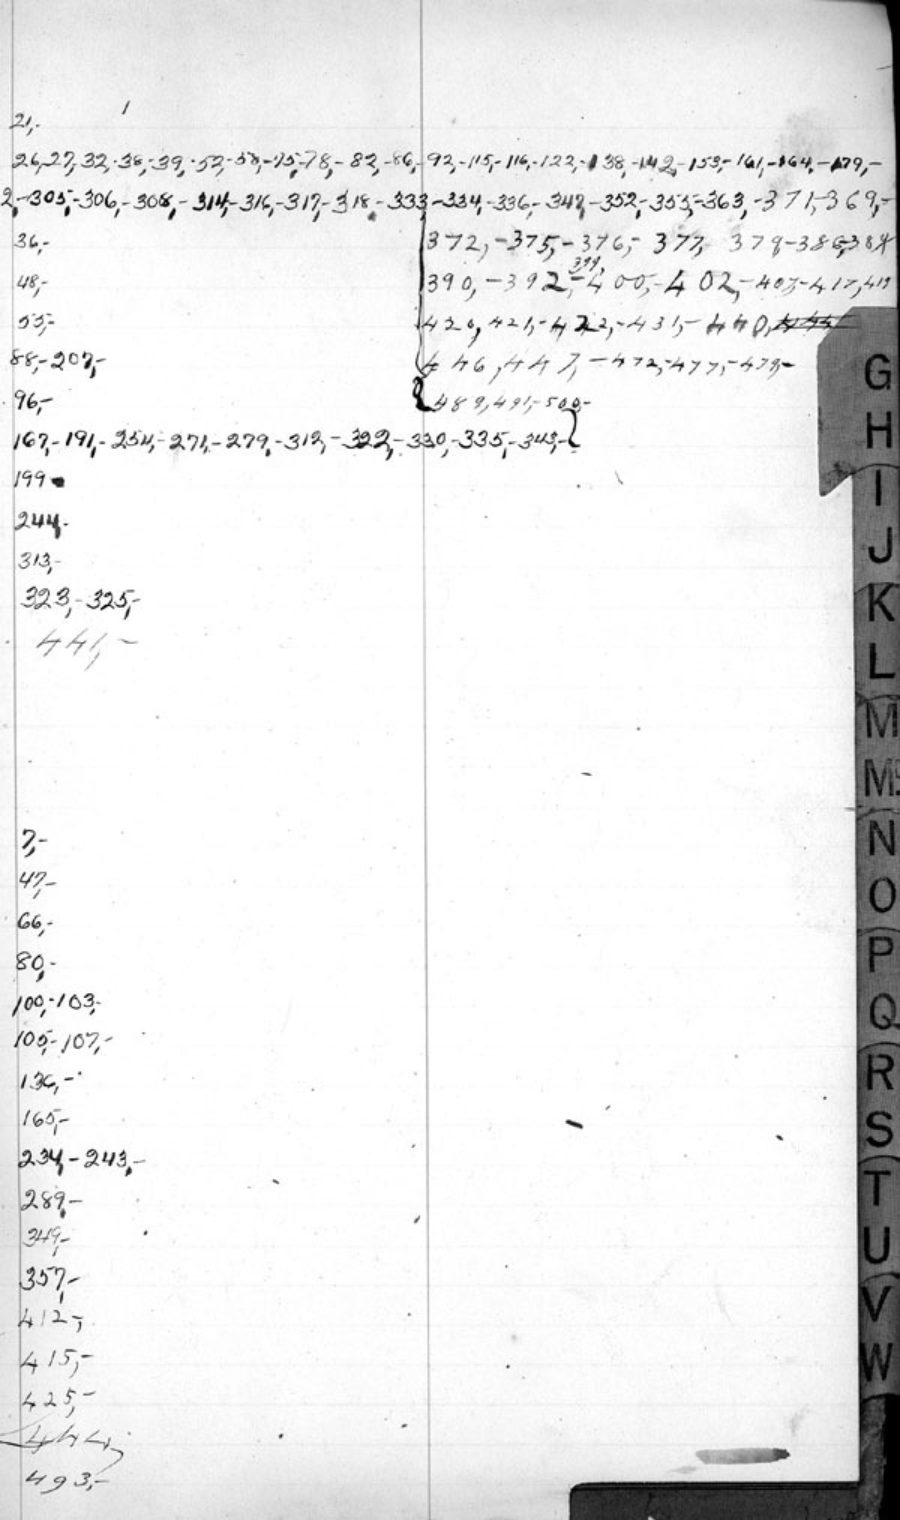 1
21,-
26,27,32,-38,-39,-52,-58,-75,-78,-82,-86,-92,-115,-116,-122,-138,-142,-153,-161,-164,-179,-
2,-305,-306,-308,-314,-316,-317,-318-333,-334,-336,-347,-352,-353,-363,-371,-369,-
36,-
372,-375,-376,-377, 379-386,384
399,
48,-
390,-392,-400,-402,-407,-417,419
55,-
420,421,-422,-431,-440,
88,-207,-
446,447,-472,-477,-479,-
96,-
489,491,-500,-
167,-191,-254,-271,-279,-312,-322,-330,-335,-343,-
199
244,-
313,-
323,-325,-
441,-
7,-
47,-
66,-
80,-
100,-103,-
105,-107,-
136,-
165,-
234,-243,-
289,-
349,-
357,-
412,-
415,-
425,-
444,
493,-
G
H
I
J
K
L
M
Mc
N
O
P
Q
R
S
T
U
V
W